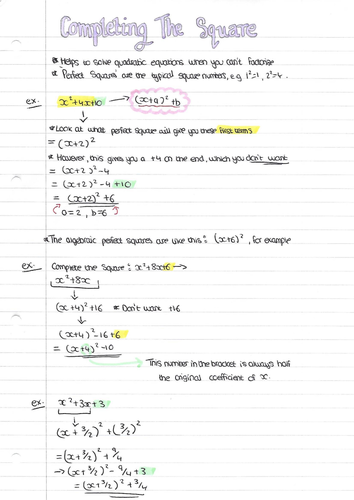 Completing The Square
* Helps to solve quadratic equations when you can't factorise
* 'Perfect Squares' are the typical square numbers, e.g 1²=1, 2²=4.
ex. x²+4x+10 → (x+a)²+b
* Look at what perfect square will give you these first terms
= (x+2)²
* However, this gives you a +4 on the end, which you don't want
= (x+2)²-4
= (x+2)²-4+10
= (x+2)²+6
a=2, b=6
* The algebraic perfect squares are like this: (x+6)², for example
ex. Complete the Square: x²+8x+6 →
x²+8x
(x+4)²+16 * Don't want +16
(x+4)²-16+6
= (x+4)²-10
This number in the bracket is always half
the original coefficient of x.
ex. x²+3x+3
(x+3/2)²+(3/2)²
=(x+3/2)²+9/4
→(x+3/2)²-9/4+3
=(x+3/2)²+3/4